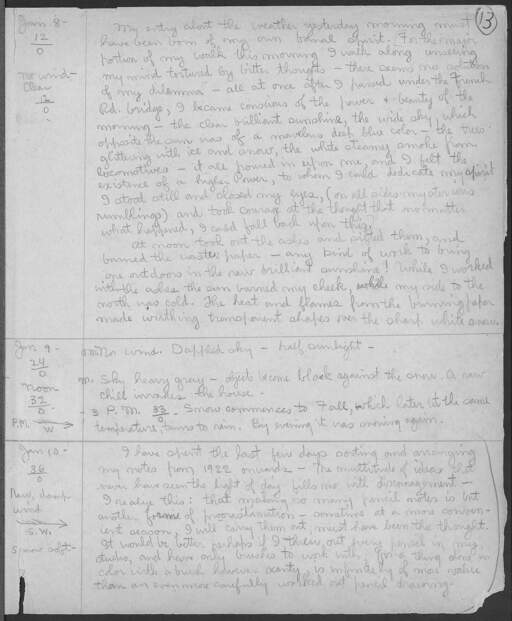 13
Jan. 8 -
12
0
no wind -
Clear
12
0
My entry about the weather yesterday morning must
have been born of my own banal spirit. For the major
portion of my walk this morning I walk along unseeing
my mind tortured by bitter thoughts - there seems no solution
of my dilemma - all at once after I passed under the French
Rd. bridge, I became conscious of the power & beauty of the
morning - the clear brilliant sunshine, the wide sky, which
opposite the sun was of a marvelous deep blue color - the trees
glittering with ice and snow, the white steamy smoke from
locomotives - it all poured in upon me, and I felt the
existence of a higher Power, to whom I could dedicate my spirit
I stood still and closed my eyes, (on all sides were
rumblings) and took courage at the thought that no matter
what happened, I could fall back upon this.
At noon took out the ashes and sifted them, and
burned the waste paper - any kind of work to bring
one outdoors in the new brilliant sunshine! While I worked
with the ashes the sun burned my cheek, while my side to the
north was cold. The heat and flames from the burning paper
made writhing transparent shapes over the sharp white snow.
Jan. 9 -
24
0
Noon
32
0
P.M.
W
No wind. Dappled sky - half sunlight -
Sky heavy gray - objects become black against the snow. A new
chill invades the house.
3 P.M. 33 0 - Snow commences to fall, which later at the same
temperature, turns to rain. By evening it was snowing again.
Jan 10 -
36
0
Raw, damp
wind
S.W.
snow soft -
I have spent the last few days sorting and arranging
my notes from 1922 onwards - The multitude of ideas that
never have seen the light of day fills me with discouragement -
I realize this: that making so many pencil notes is but
another form of procrastination - sometimes at a more conven-
ient season I will carry them out, must have been the thought.
It would be better perhaps if I threw out every pencil in my
studio, and have only brushes to work with, for a thing done in
color with a brush however scanty, is infinitely of more value
than an even more carefully worked out pencil drawing